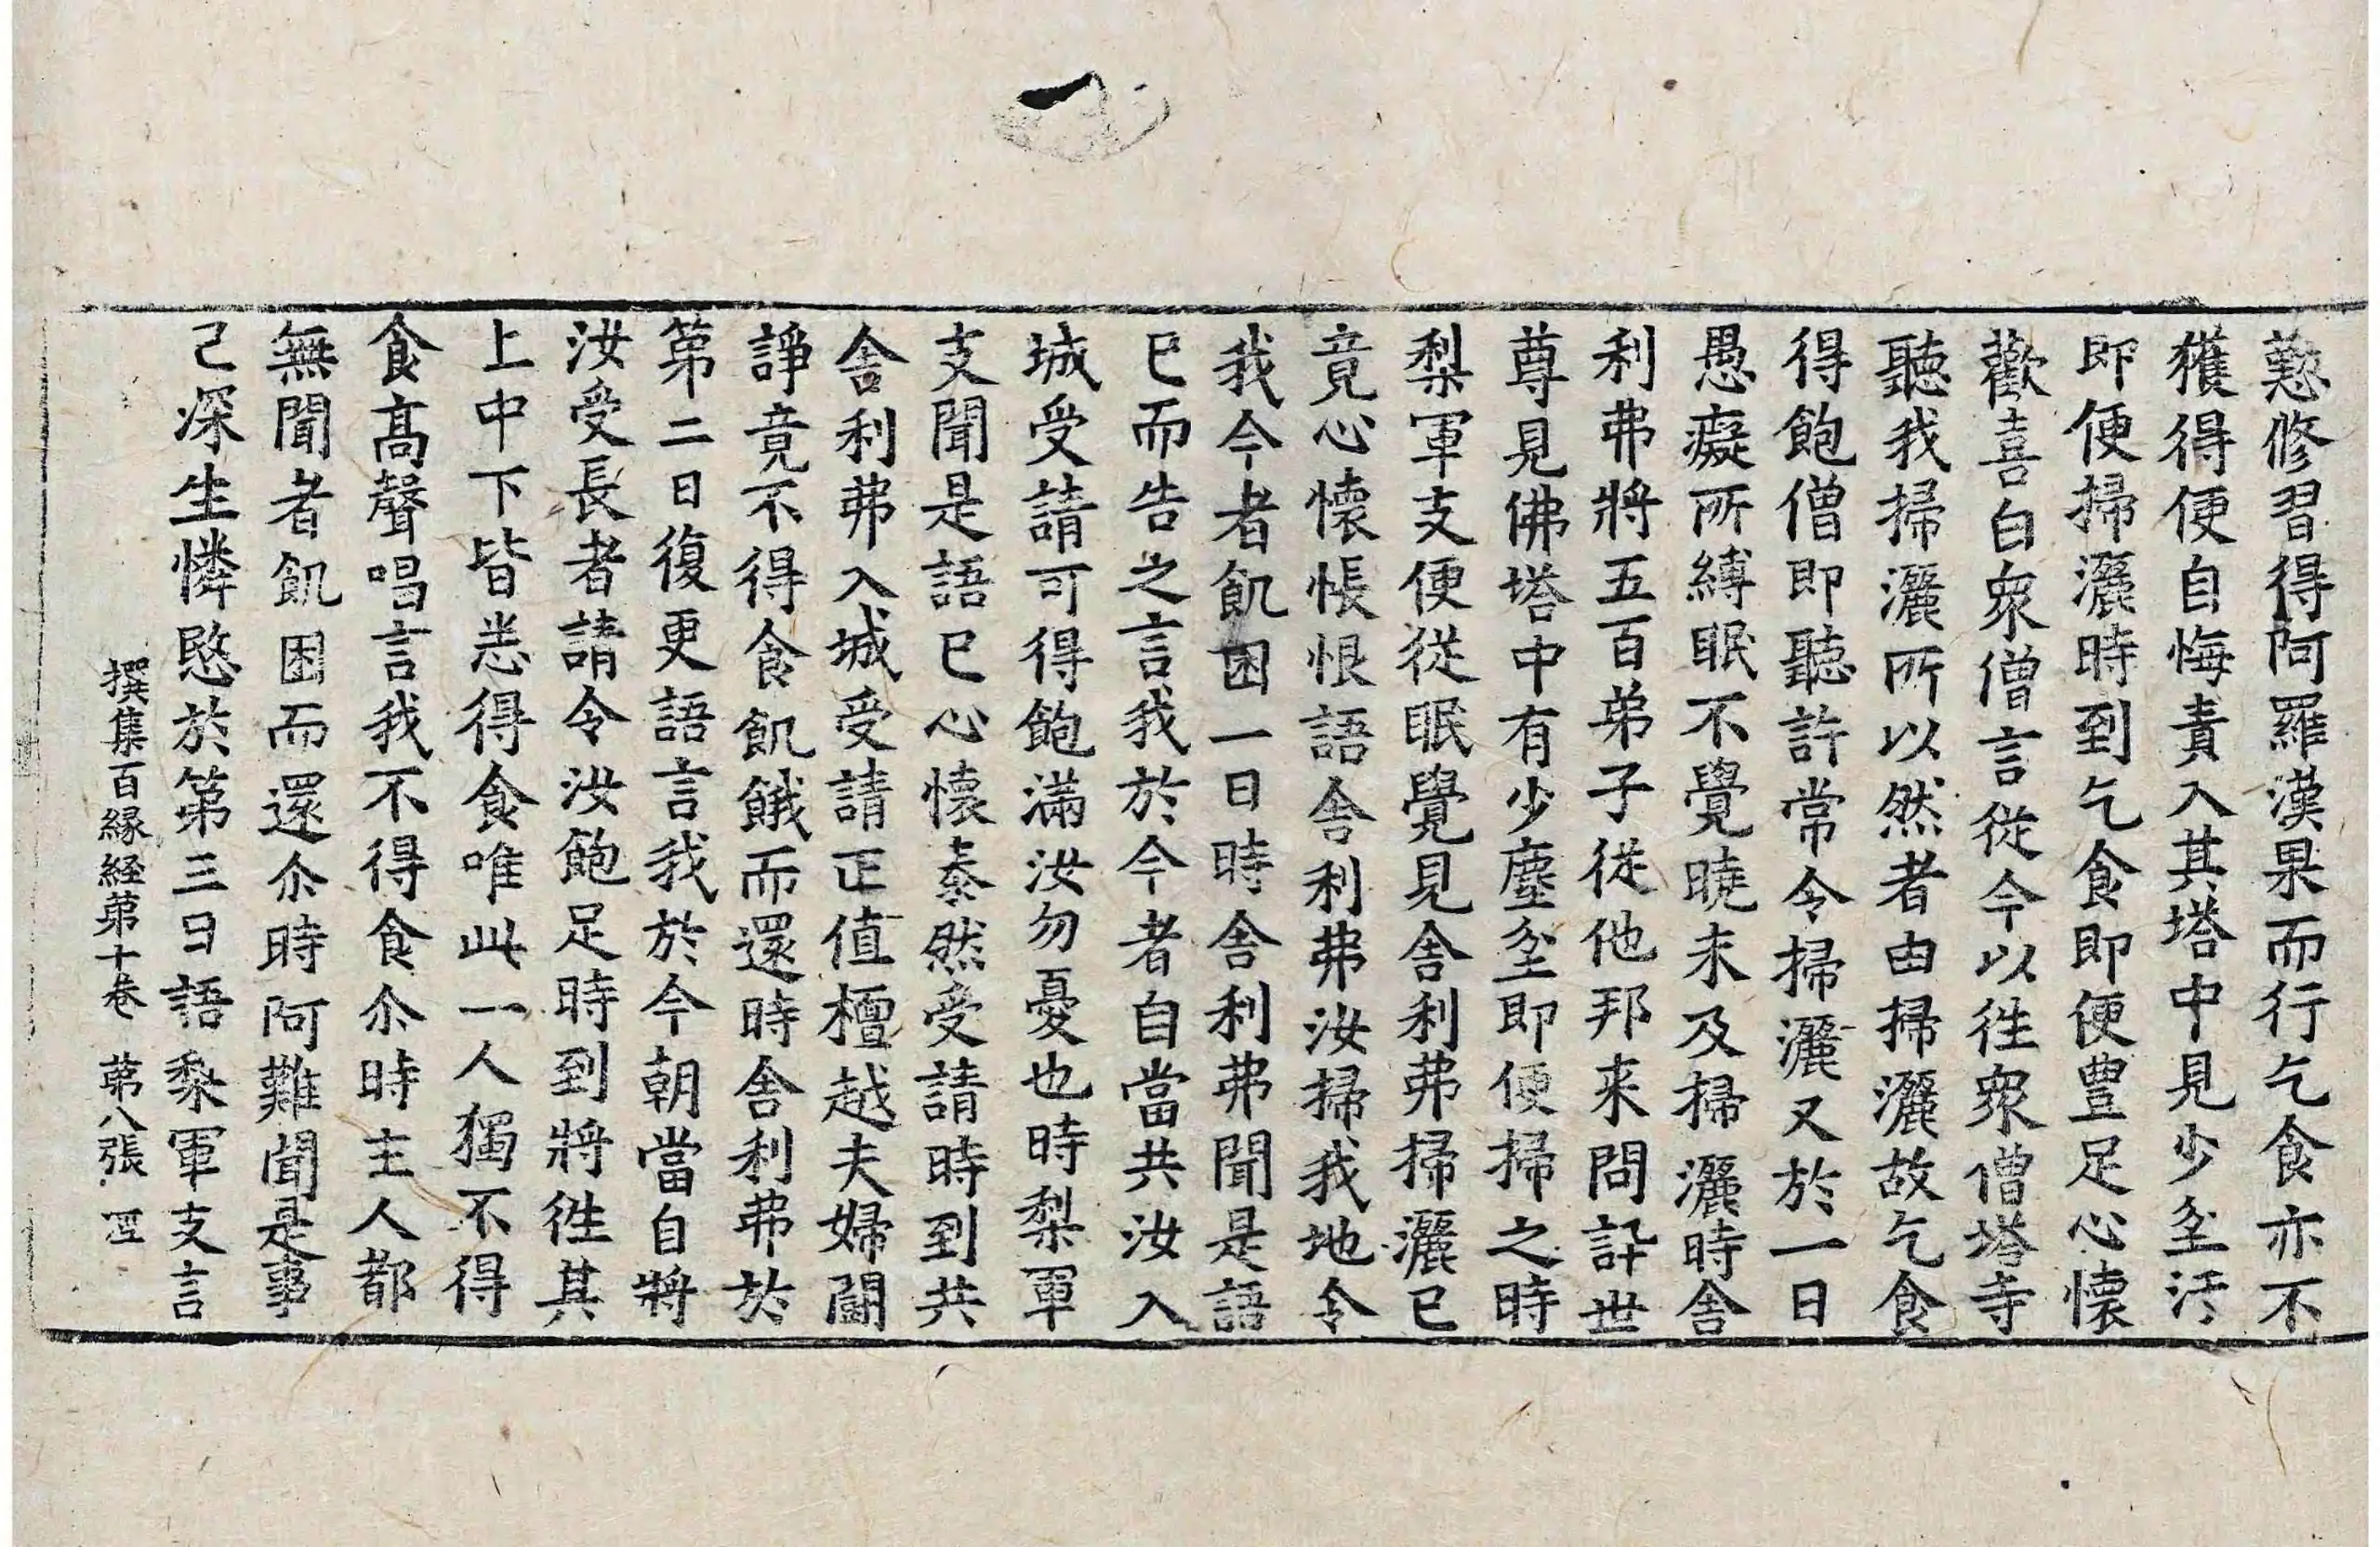 懃修習得阿羅漢果而行乞食亦不
獲得便自悔責入其塔中見少坌汙
即便掃灑時到乞食即便豊足心懷
歡喜白衆僧言従今以徃衆僧塔寺
聽我掃灑所以然者由掃灑故乞食
得飽僧即聽許常令掃灑又於一日
愚癡所縛眠不覺曉未及掃灑時舍
利弗將五百弟子従他邦来問訊世
尊見佛塔中有少塵坌即便掃之時
梨軍支便従眠覺見舍利弗掃灑已
竟心懷悵恨語舍利弗汝掃我地令
我今者飢困一日時舍利弗聞是語
已而告之言我於今者自當共汝入
城受請可得飽滿汝勿憂也時梨軍
支聞是語已心懷泰然受請時到共
舍利弗入城受請正值檀越夫婦鬪
諍竟不得食飢餓而還時舍利弗於
第二日復更語言我於今朝當自將
汝受長者請令汝飽足時到將徃其
上中下皆悉得食唯此一人獨不得
食高聲唱言我不得食尒時主人都
無聞者飢困而還尒時阿難聞是事
已深生憐愍於第三日語梨軍支言
撰集百縁経第十卷　第八張　罒